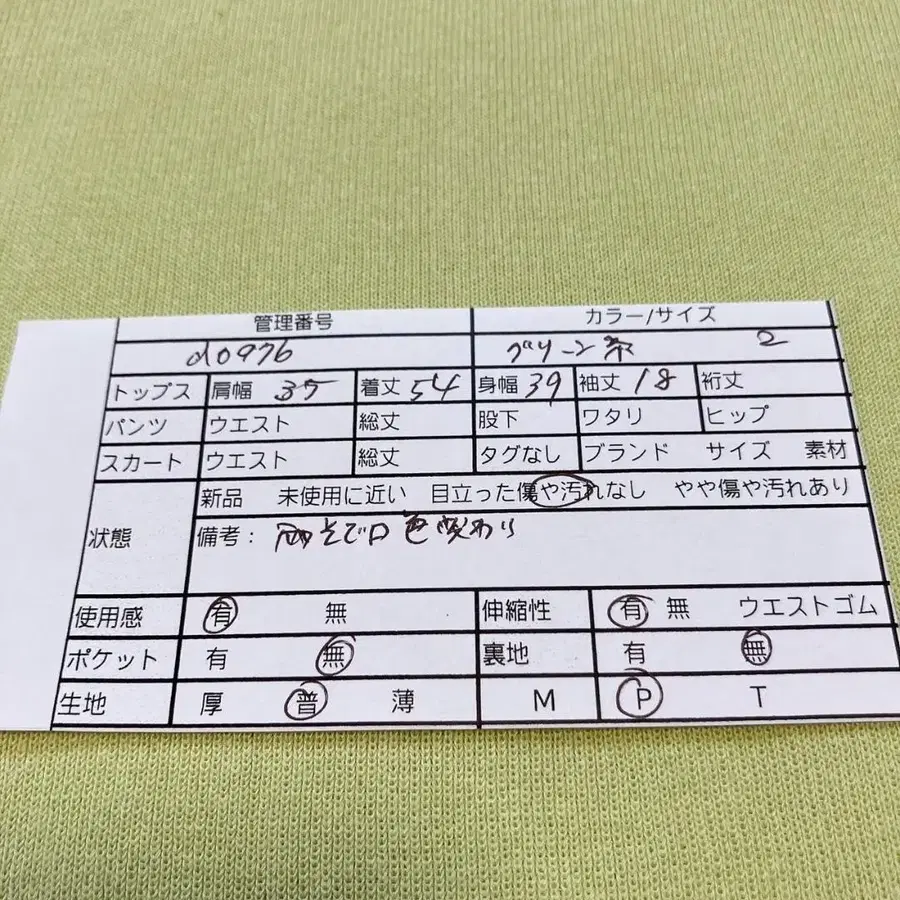 管理番号 カラー/サイズ
d0976 グリーン系 2
トップス 肩幅 37 着丈 54 身幅 39 袖丈 18 裄丈
パンツ ウエスト 総丈 股下 ワタリ ヒップ
スカート ウエスト 総丈 タグなし ブランド サイズ 素材
状態 新品 未使用に近い 目立った傷や汚れなし やや傷や汚れあり
備考: 両そで口色変わり
使用感 有 無 伸縮性 有 無 ウエストゴム
ポケット 有 無 裏地 有 無
生地 厚 普 薄 M P T